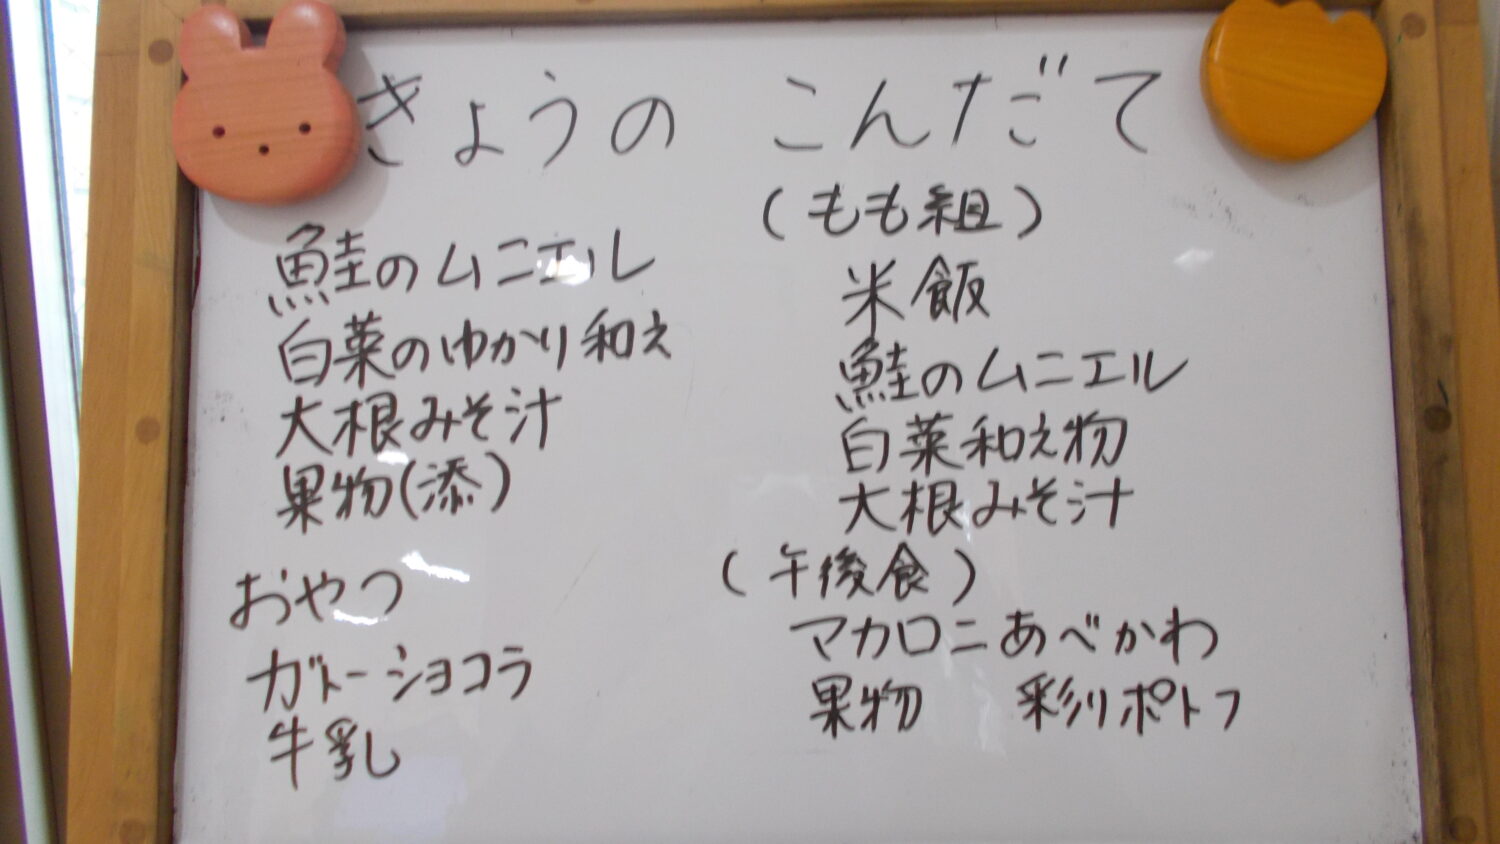 きょうの こんだて
鮭のムニエル
白菜のゆかり和え
大根みそ汁
果物(添)
おやつ
ガトーショコラ
牛乳
(もも組)
米飯
鮭のムニエル
白菜和え物
大根みそ汁
(午後食)
マカロニあべかわ
果物 彩りポトフ